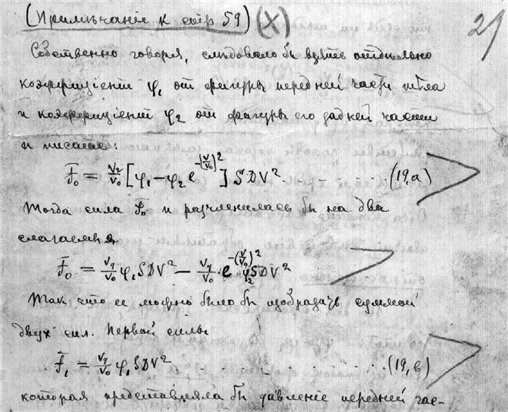 (Примѣчаніе к стр 59) (X) 29
Собственно говоря, слѣдовало бы взять отдѣльно
коэффиціент φ₁ от фигуры передней части тѣла
и коэффиціент φ₂ от фигуры его задней части
и писать:
F₀ = V₁/V₀ [φ₁ - φ₂ e^-(V/V₀)²] SDV² . . . . . . (19,a)
Тогда сила F₀ и расчленилась бы на два
слагаемыя
F₀ = V₁/V₀ φ₁SDV² - V₁/V₀ e^-(V/V₀)² φ₂SDV²
Так что ее можно было бы изобразить суммой
двух сил. Первой силы
F₁ = V₁/V₀ φ₁SDV² . . . . . . . . . (19,b)
которая представляла бы давление передней час-